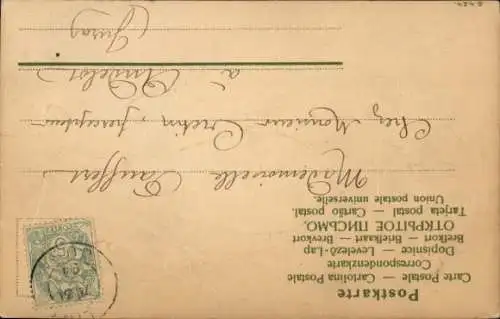 Postkarte
Carte Postale — Cartolina Postale
Correspondenzkarte
Dopisnice — Levelező-Lap
Brefkort — Briefkaart — Brevkort
ОТКРЫТОЕ ПИСЬМО.
Tarjeta postal — Cartão postal.
Union postale universelle.
Mademoiselle Tauffert
Chez Monsieur Cretin, percepteur
à Andelot
(Jura)